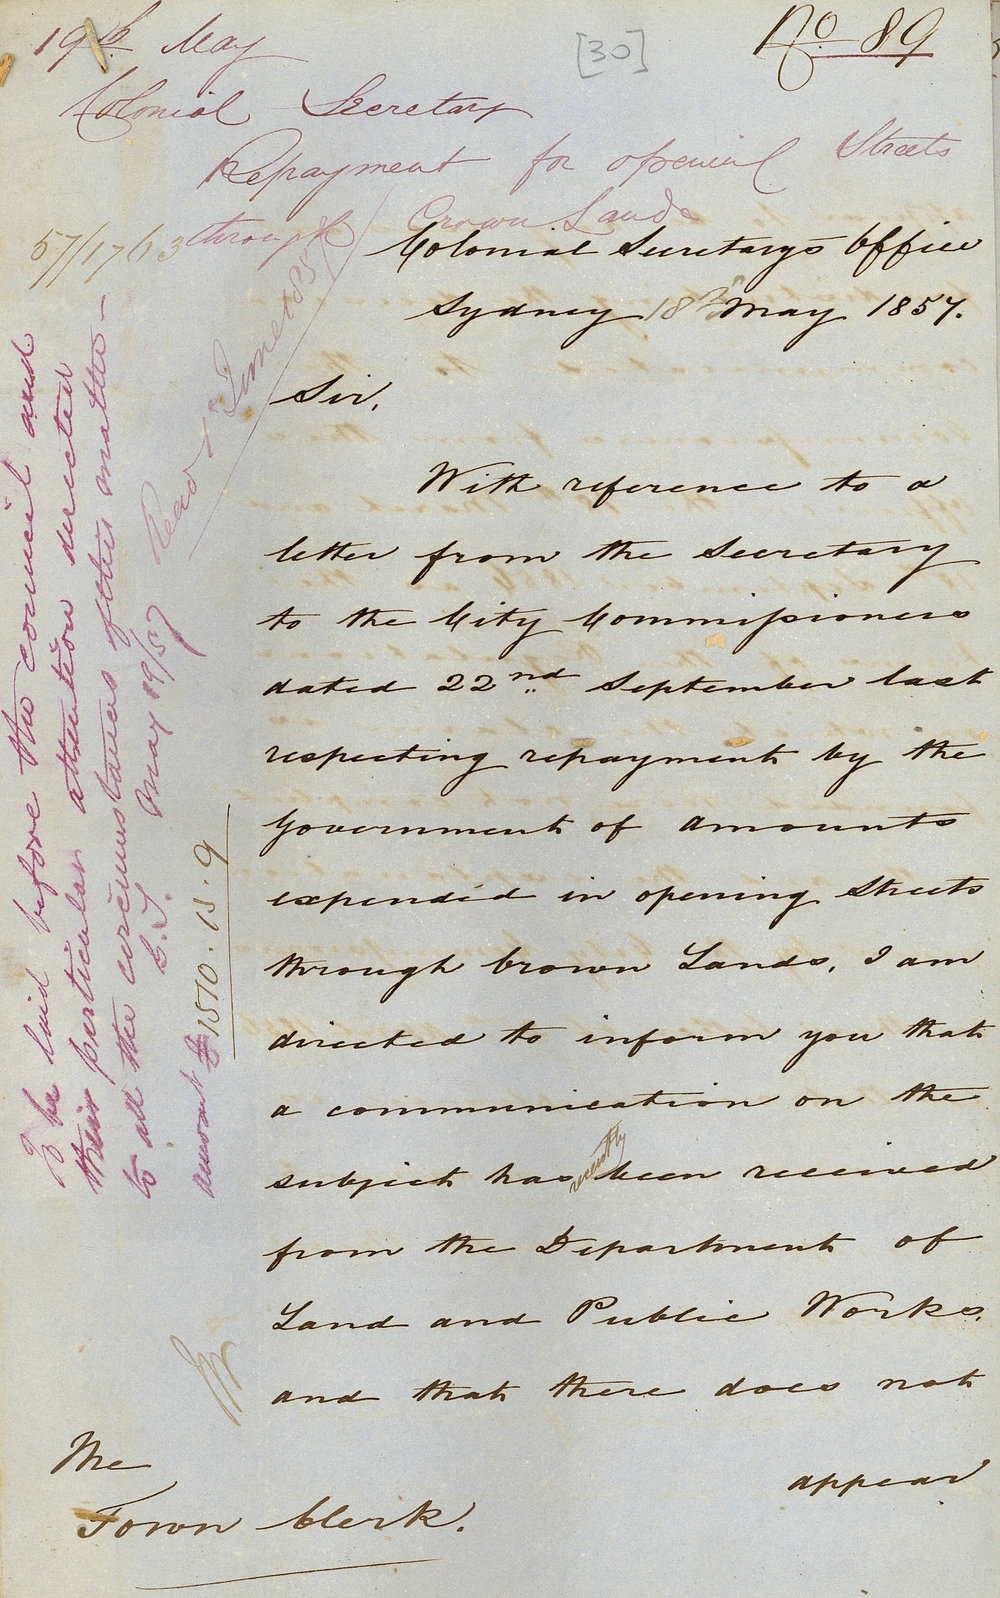 19th May
[30]
No 89
Colonial Secretary
Repayment for opening Streets
through Crown Lands
57/1763
Colonial Secretary's Office
Sydney 18th May 1857.
Sir,
With reference to a
letter from the Secretary
to the City Commissioners
dated 22nd September last
respecting repayment by the
Government of amounts
expended in opening Streets
through Crown Lands, I am
directed to inform you that
a communication on the
subject has recently been received
from the Department of
Land and Public Works,
and that there does not
appear
The
Town Clerk.
To be laid before the council and
their particular attention directed
to all the circumstances of the matter –
May 19/57
Read 1st June 1857
amount £1510.13.9